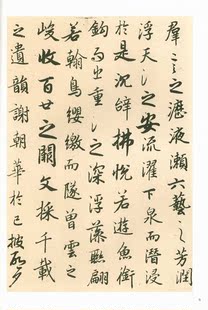 群言之瀝液漱六藝之芳潤
浮天淵之安流濯下泉而潛浸
於是沈辭怫悅若遊魚銜
鉤而出重淵之深浮藻聯翩
若翰鳥纓繳而墜曾雲之
峻收百世之闕文採千載
之遺韻謝朝華於已披啟夕